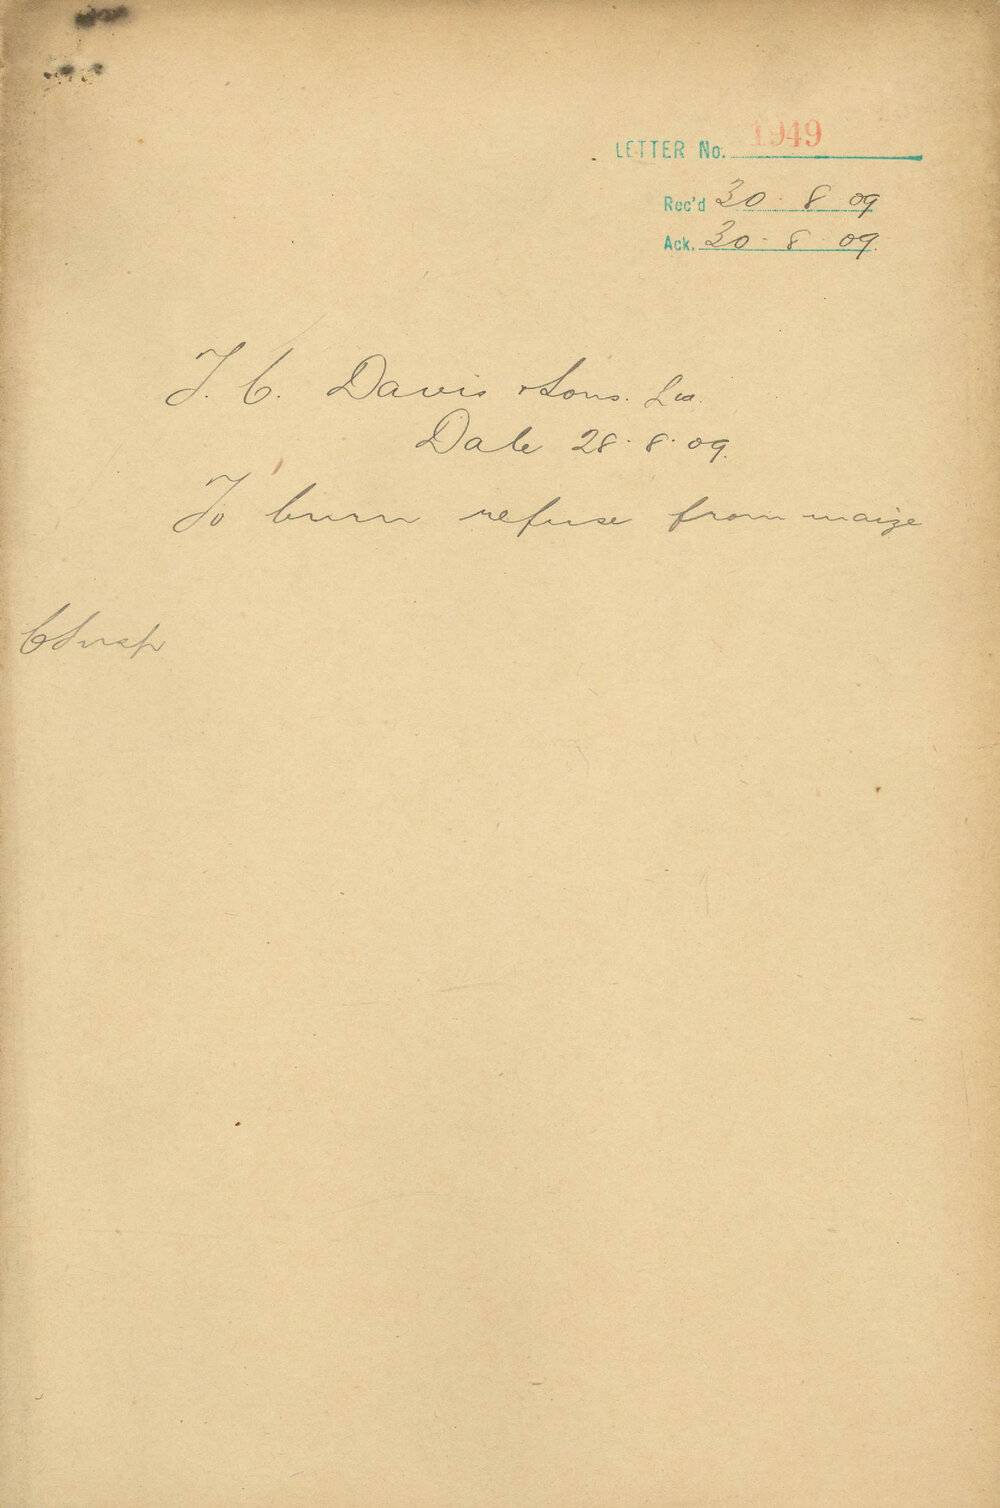 LETTER No. 1949
Rec'd 30 . 8 09
Ack. 30 - 8 09.
T. C. Davis & Sons. Ltd.
Date 28. 8. 09.
To burn refuse from maize
C Insp